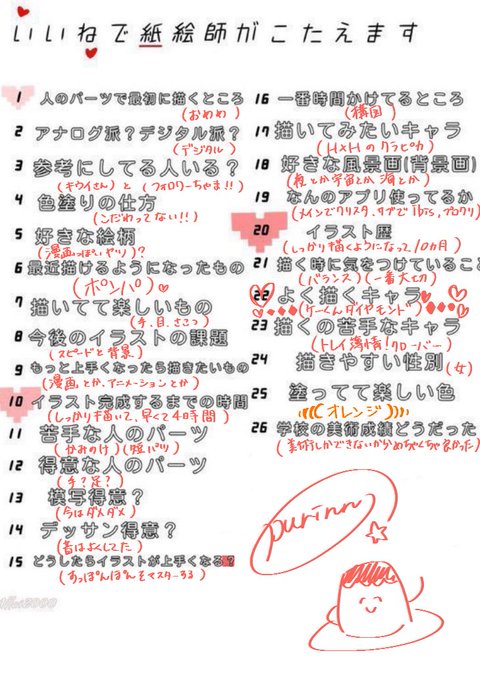 いいねで紙絵師がこたえます
1 人のパーツで最初に描くところ
(おめめ)
2 アナログ派？デジタル派？
(デジタル)
3 参考にしてる人いる？
(キウイさん) と (フォロワーちゃま!!)
4 色塗りの仕方
(こだわってない!!)
5 好きな絵柄
(漫画っぽいヤツ)?
6 最近描けるようになったもの
(ポンパ)
7 描いてて楽しいもの
(手、目、さこつ)
8 今後のイラストの課題
(スピードと背景)
9 もっと上手くなったら描きたいもの
(漫画とか、アニメーションとか)
10 イラスト完成するまでの時間
(しっかり描いて、早くて4時間)
11 苦手な人のパーツ
(かみのけ)
12 得意な人のパーツ
(手？足？)
13 模写得意？
(今はダメダメ)
14 デッサン得意？
(昔はよくしてた)
15 どうしたらイラストが上手くなる？
(すっぽんぽんをマスターする)
16 一番時間かけてるところ
(構図)
17 描いてみたいキャラ
(H×Hのクラピカ)
18 好きな風景画(背景画)
(夜とか宇宙とか海とか)
19 なんのアプリ使ってるか
(メインでクリスタ、サブでibis、プロクリ)
20 イラスト歴
(しっかり描くようになって、10カ月)
21 描く時に気をつけているこ
(バランス)(一番大切)
22 よく描くキャラ
(ケーくんダイヤモンド)
23 描くの苦手なキャラ
(トレイ薄情!クローバー)
24 描きやすい性別
(女)
25 塗ってて楽しい色
(((オレンジ))))
26 学校の美術成績どうだった
(美術しかできないからめちゃくちゃ良かった)
purinn